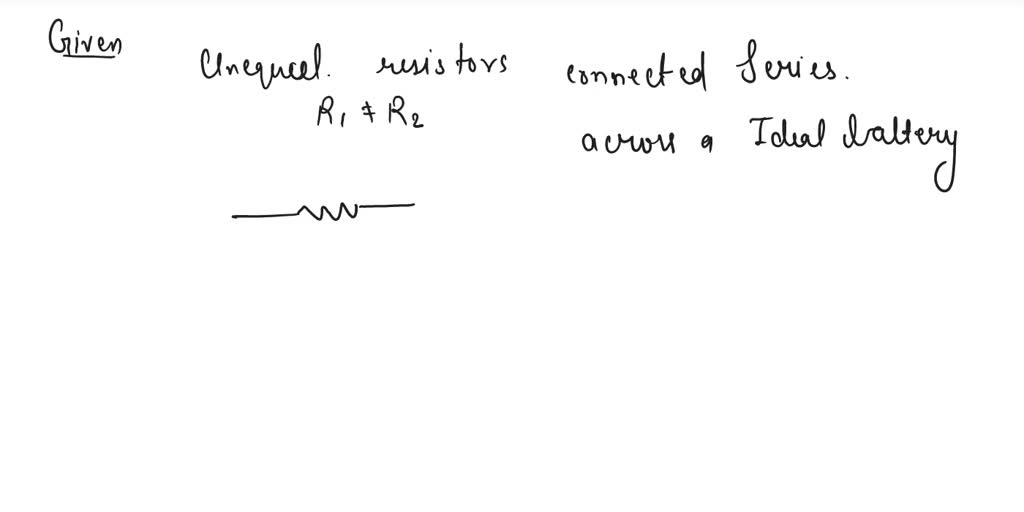 Given
Unequal. resistors connected Series.
R₁ ≠ R₂
across a Ideal battery